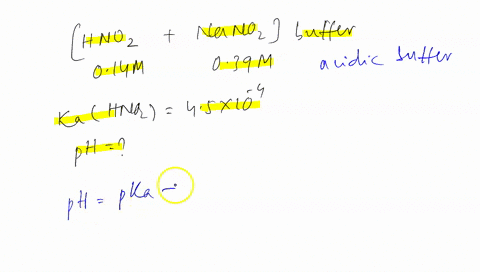 [HNO₂ + NaNO₂] buffer
0.14M 0.39M acidic buffer
Ka(HNO₂) = 4.5×10⁻⁴
pH = ?
pH = pKa -